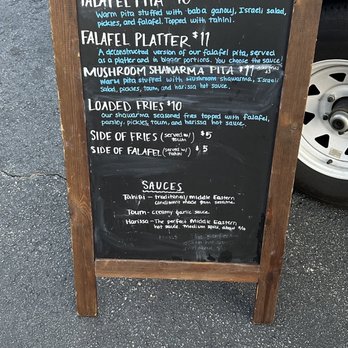 FALAFEL PITA
Warm pita stuffed with baba ganouj, Israeli salad,
pickles, and falafel. Topped with tahini.
FALAFEL PLATTER $11
A deconstructed version of our falafel pita, served
as a platter and in bigger portions. You choose the sauce!
MUSHROOM SHAWARMA PITA $11
Warm pita stuffed with mushroom shawarma, Israeli
salad, pickles, toum, and harissa hot sauce.
LOADED FRIES $10
Our shawarma seasoned fries topped with falafel,
parsley, pickles, toum, and harissa hot sauce.
SIDE OF FRIES (served w/ toum) $5
SIDE OF FALAFEL (served w/ tahini) $5
SAUCES
Tahini - traditional/middle Eastern
condiment made from sesame.
Toum - creamy garlic sauce
Harissa - The perfect Middle Eastern
hot sauce. Medium spice, about